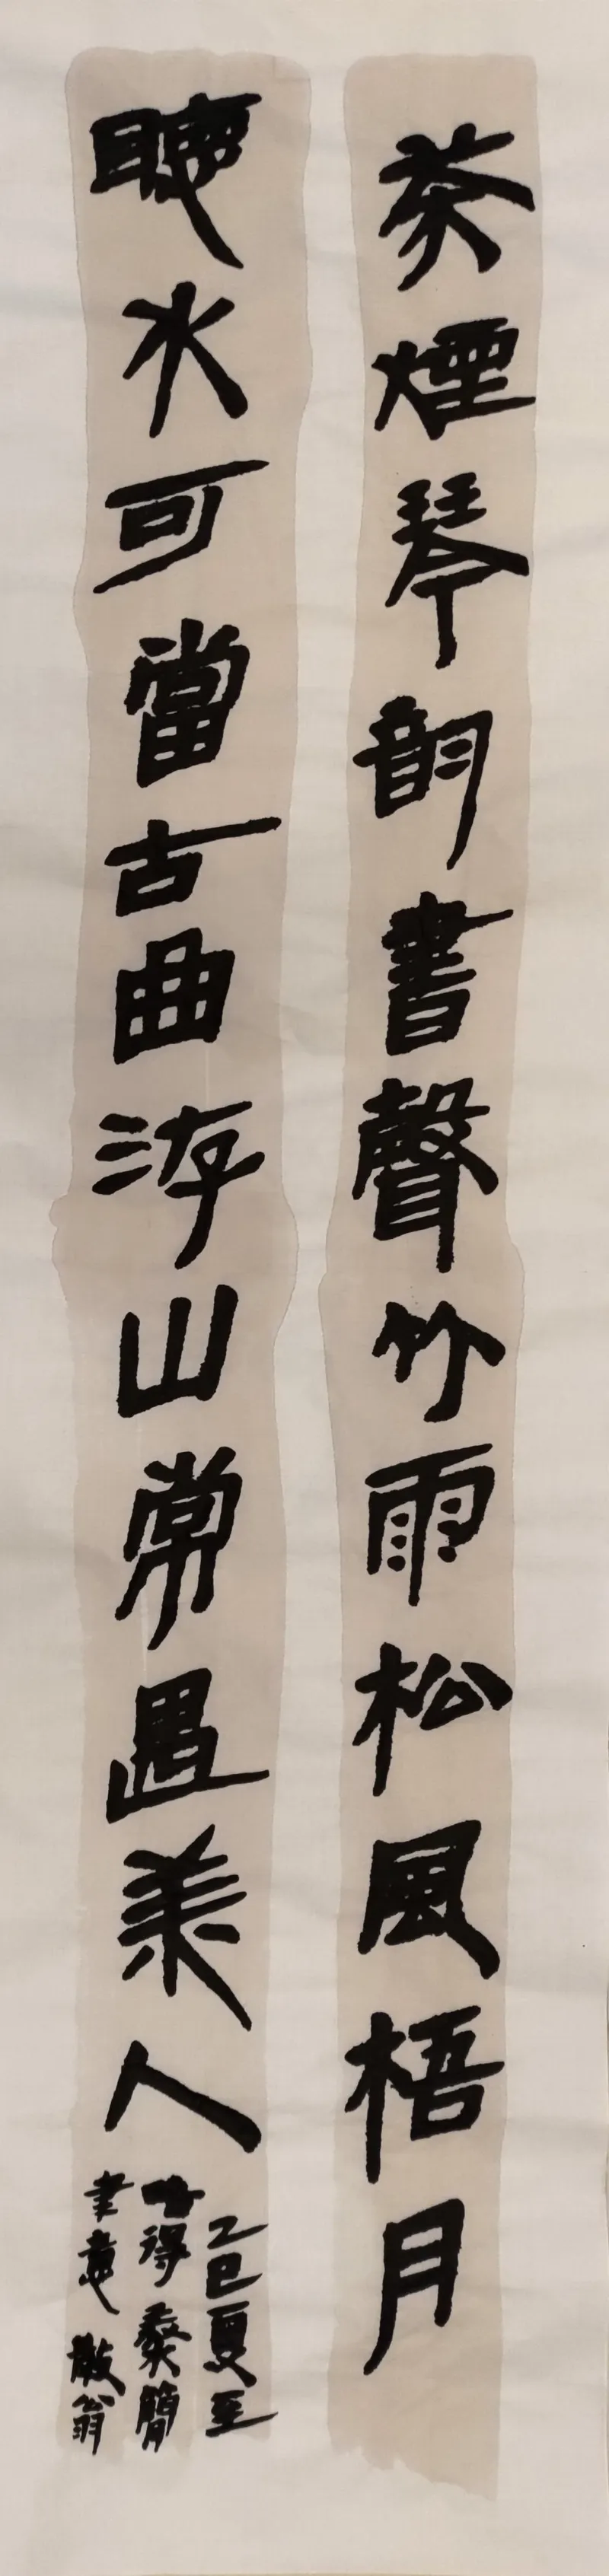 茶煙琴韵書聲竹雨松風梧月
聽水可當古曲游山常遇美人
乙巳夏至
略得爨簡
筆意 散翁